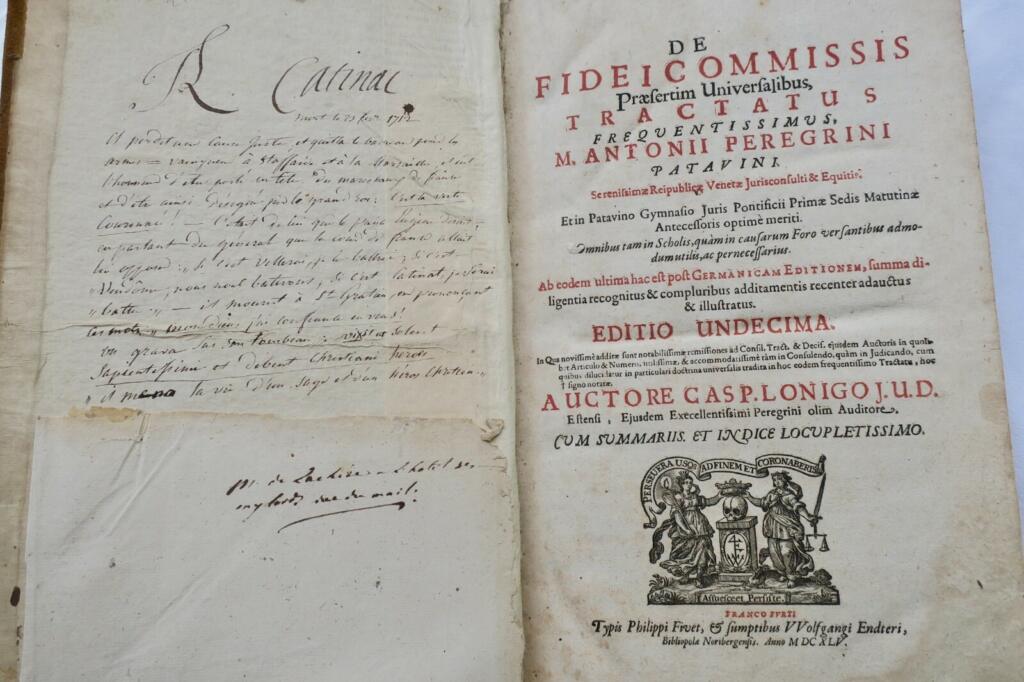 R. Catinat
mort le 25 fev. 1712
Il perdit une cause juste, et quitta le barreau pour les
armes = vainqueur à Staffarde et à la Marsaille, il eut
l'honneur d'être porté en tête des maréchaux de france
et d'être ainsi désigné par le grand roi: c'est la vertu
Couronnée! — C'était de lui que le prince Eugène disait,
en parlant du général que la cour de france allait
lui opposer: „ Si c'est Villeroi, je le battrai; si c'est
„ Vendôme, nous nous battrons, si c'est Catinat, je serai
„ battu. „ — il mourut à St. Gratien, en prononçant
les mots „ mon dieu, j'ai confiance en vous!
on grava sur son tombeau: vixit ut solent
Sapientissimi et debent Christiani heroes
„ il mena la vie d'un Sage et d'un héros chrétien „
M. de
mylords rue du mail:
DE
FIDEICOMMISSIS
Præsertim Universalibus,
TRACTATUS
FREQUENTISSIMUS,
M. ANTONII PEREGRINI
PATAVINI.
Serenissimæ Reipublicæ Venetæ Jurisconsulti & Equitis.
Et in Patavino Gymnasio Juris Pontificii Primæ Sedis Matutinæ
Antecessoris optimè meriti.
Omnibus tam in Scholis, quàm in causarum Foro versantibus admo-
dum utilis, ac pernecessarius.
Ab eodem ultima hac est post GERMANICAM EDITIONEM, summa di-
ligentia recognitus & compluribus additamentis recenter adauctus
& illustratus.
EDITIO UNDECIMA.
In Qua novissimè additæ sunt notabilissimæ remissiones ad Consil. Tract. & Decis. ejusdem Auctoris in quoli-
bet Articulo & Numero, utilissimæ, & accommodatissimæ tàm in Consulendo, quàm in Judicando, cum
quibus dilucidatur in particulari doctrina universalis tradita in hoc eodem frequentissimo Tractatu, hoc
† signo notatæ.
AUCTORE CASP. LONIGO J. U. D.
Estensi, Ejusdem Execellentissimi Peregrini olim Auditore.
CUM SUMMARIIS. ET INDICE LOCUPLETISSIMO.
PERSEVERA USQ; AD FINEM ET CORONABERIS
Assuesce et Persiste.
FRANCOFURTI
Typis Philippi Fivet, & sumptibus VVolfgangi Endteri,
Bibliopolæ Noribergensis. Anno M DC XLV.